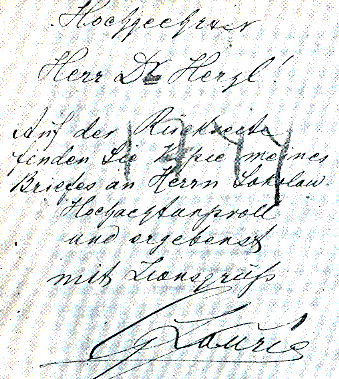 Hochgeehrter
Herr Dr Herzl!
Auf der Rückseite
finden Sie Kopie meines
Briefes an Herrn Sokolow.
Hochachtungsvoll
und ergebenst
mit Zionsgruß